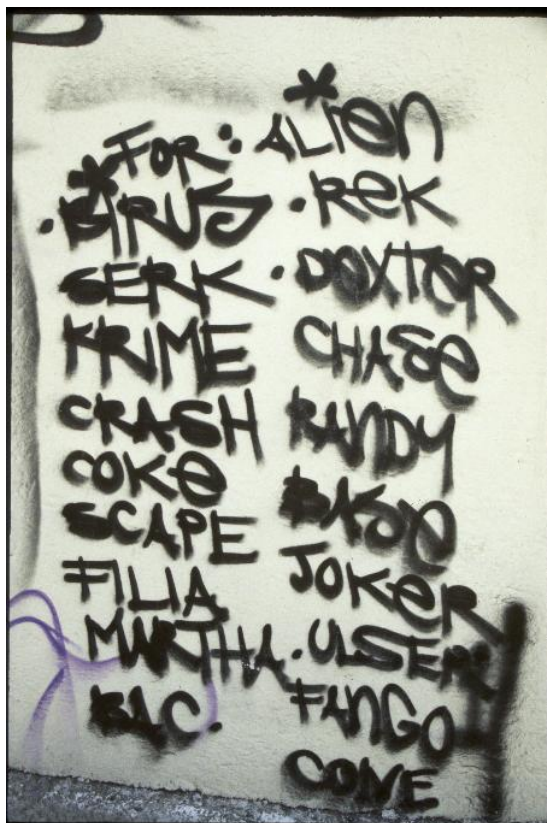 *FOR:
*BIRUS
SERK
KRIME
CRASH
COKE
SCAPE
FILIA
MARTHA.
BAC.
*ALIEN
REK
DEXTER
CHASE
RANDY
BASE
JOKER
ULSER
FANGO
CONE